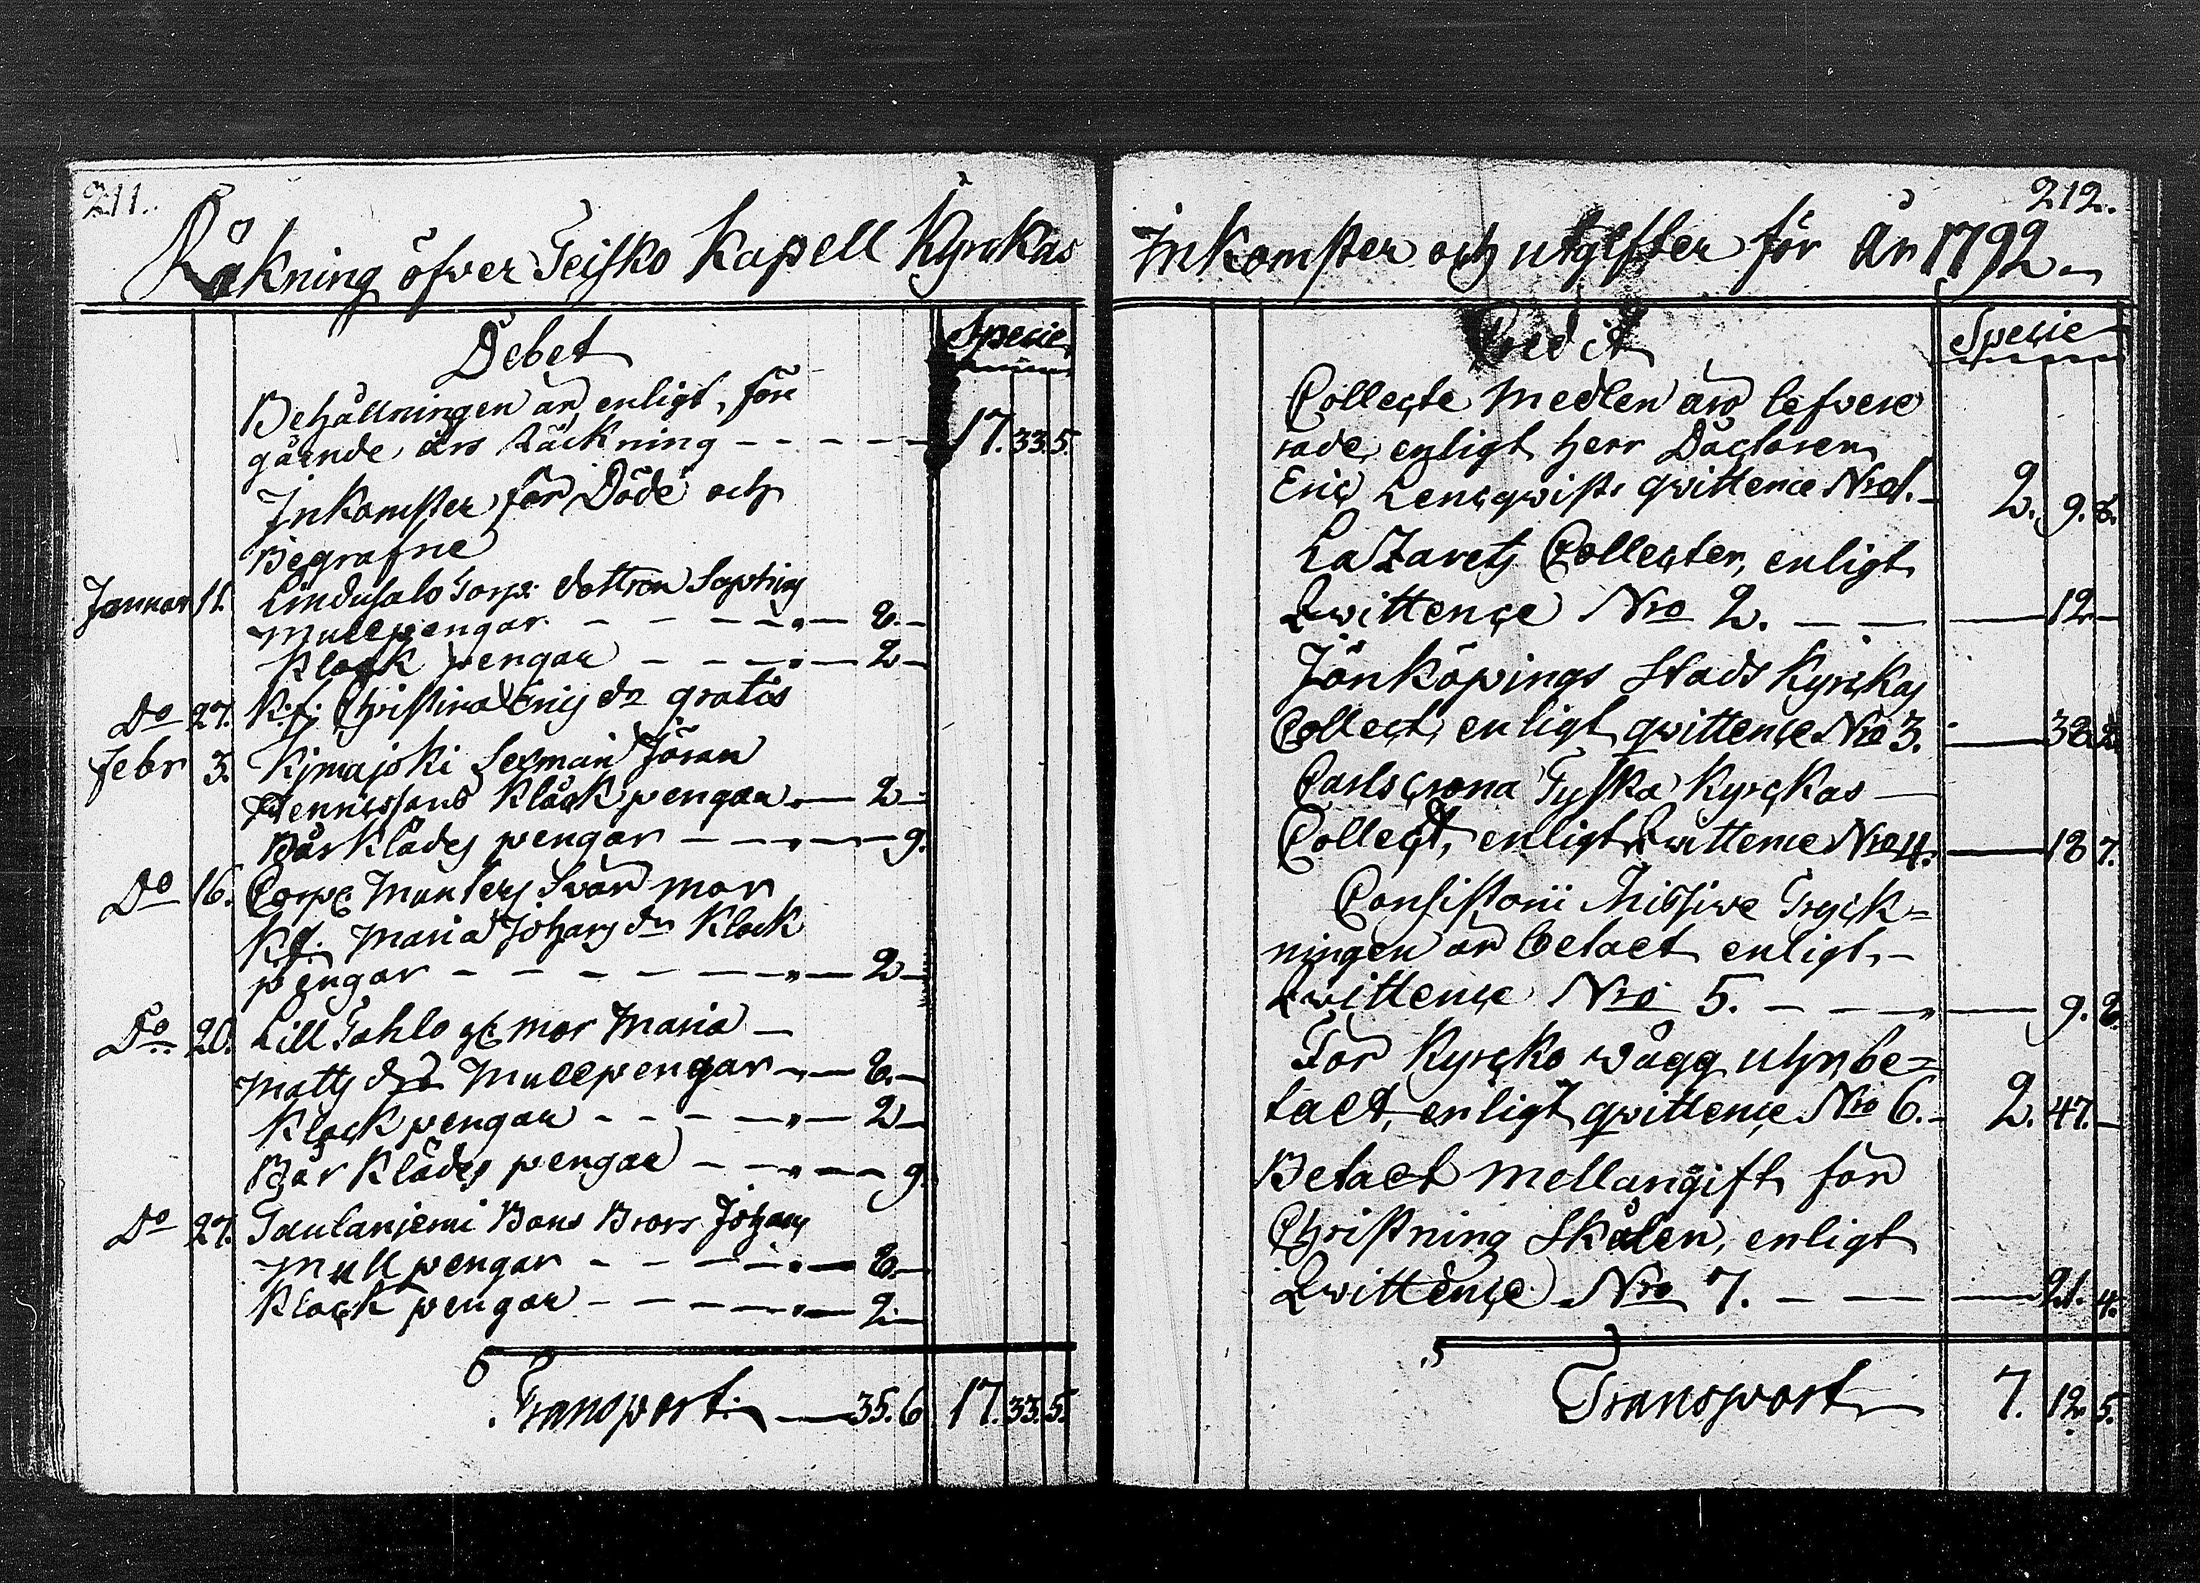 211.
Räkning öfwer Teisko Kapell Kyrckas
Debet
Specie
Behållningen är enligt före
gående års Räckning - - - - - 17. 33. 5.
Inkomster för Döde och
Begrafne
Januar 11. Lindusalo Torp: dottren Saphias
Mullpengar - - - - „ — 8. —
Klock pengar - - - - „ — 2 —
Do 27. K: f: Christina Erics dr gratis
Febr 3. Kjmajoki Sexman Jöran
Hennicssons Klåck pengar. — 2 —
Bårklädes pengar - - - „ — 9.
Do 16. Corpr Munters Svär mor
K: f: Maria Johans dr Klock
pengar - - - - - - „ — 2 —
Do 20. Lill Tahlo gl mor Maria —
Matts dr Mullpengar - „ — 8. —
Klock pengar - - - - „ — 2 —
Bår Klädes pengar - - „ — 9.
Do 27. Taulaniemi Bons Brors Johans
Mull pengar - - - - „ — 8. —
Klock pengar - - - - „ — 2. —
Transport. — 35. 6. 17. 33. 5.
212.
Inkomster och utgifter för År 1792
Credit
Specie
Collecte Medlen äro lefvere
rade, enligt Herr Doctoren
Eric Lencqwists qwittence Nro 1. — 2. 9. 8.
Lazarets Collecter, enligt
Qwittence Nro 2. — — — 12 —
Jönköpings Stads Kyrckas
Collect, enligt qwittence Nro 3. — 38. 2.
Carlscrona Tyska Kyrckas —
Collect, enligt Qwittence Nro 4. — 18 7.
Consistorii Missive Tryck=
ningen är betalt enligt —
Qwittence Nro 5. — — — „ — 9. 8.
För Kyrcko wägg uhr be=
talt, enligt qwittence Nro 6. - 2. 47. —
Betalt mellangift för
Christning Skålen, enligt
Qwittence Nro 7. — — — 21. 4.
Transport 7. 12. 5.